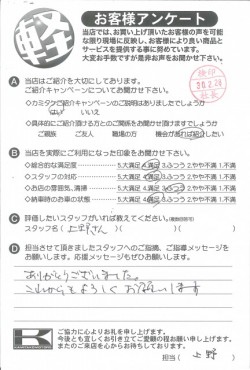 軽
お客様アンケート
当店では、お買い上げ頂いたお客様の声を可能
な限り現場に反映し、お客様により良い商品と
サービスを提供する事に努めています。
大変お手数ですが是非お声をお聞かせ下さい。
A 当店はご紹介を大切にしております。
ご紹介キャンペーンについてお聞かせ下さい。
◇カミタケご紹介キャンペーンのご説明はありましたでしょうか
はい いいえ
◇具体的にご紹介頂ける方とのご関係をお聞かせ頂けますでしょうか
ご親族 ご友人 職場の方 機会があれば紹介したい
B 当店を実際にご利用になった印象をお聞かせ下さい。
◇総合的な満足度 5.大満足 4.満足 3.ふつう 2.やや不満 1.不満
◇スタッフの対応 5.大満足 4.満足 3.ふつう 2.やや不満 1.不満
◇お店の雰囲気、清掃 5.大満足 4.満足 3.ふつう 2.やや不満 1.不満
◇納車時のお車の状態 5.大満足 4.満足 3.ふつう 2.やや不満 1.不満
C 評価したいスタッフがいれば教えてください。(複数回答可)
スタッフ名( 上野さん )
D 担当させて頂きましたスタッフへのご指摘、ご指導メッセージを
お願いします。応援メッセージもぜひお願いします。
ありがとうございました。
これからもよろしくお願いします
ご協力に心よりお礼を申し上げます。
今後とも宜しくお引き立てご愛顧の程お願い申し上げます。
またのご来店を心からお待ちしております。
担当( 上野 )